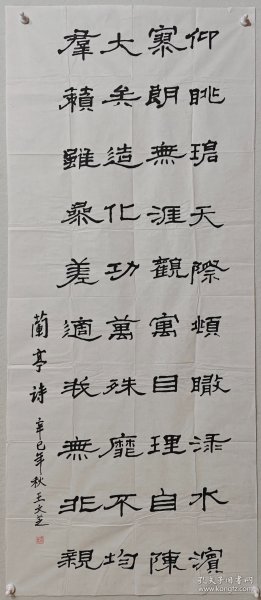 仰眺碧天際頫瞰淥水濱
寥朗無涯觀寓目理自陳
大矣造化功萬殊靡不均
羣籟雖參差適我無非親
蘭亭詩 辛巳年秋王文
孔夫子旧书网